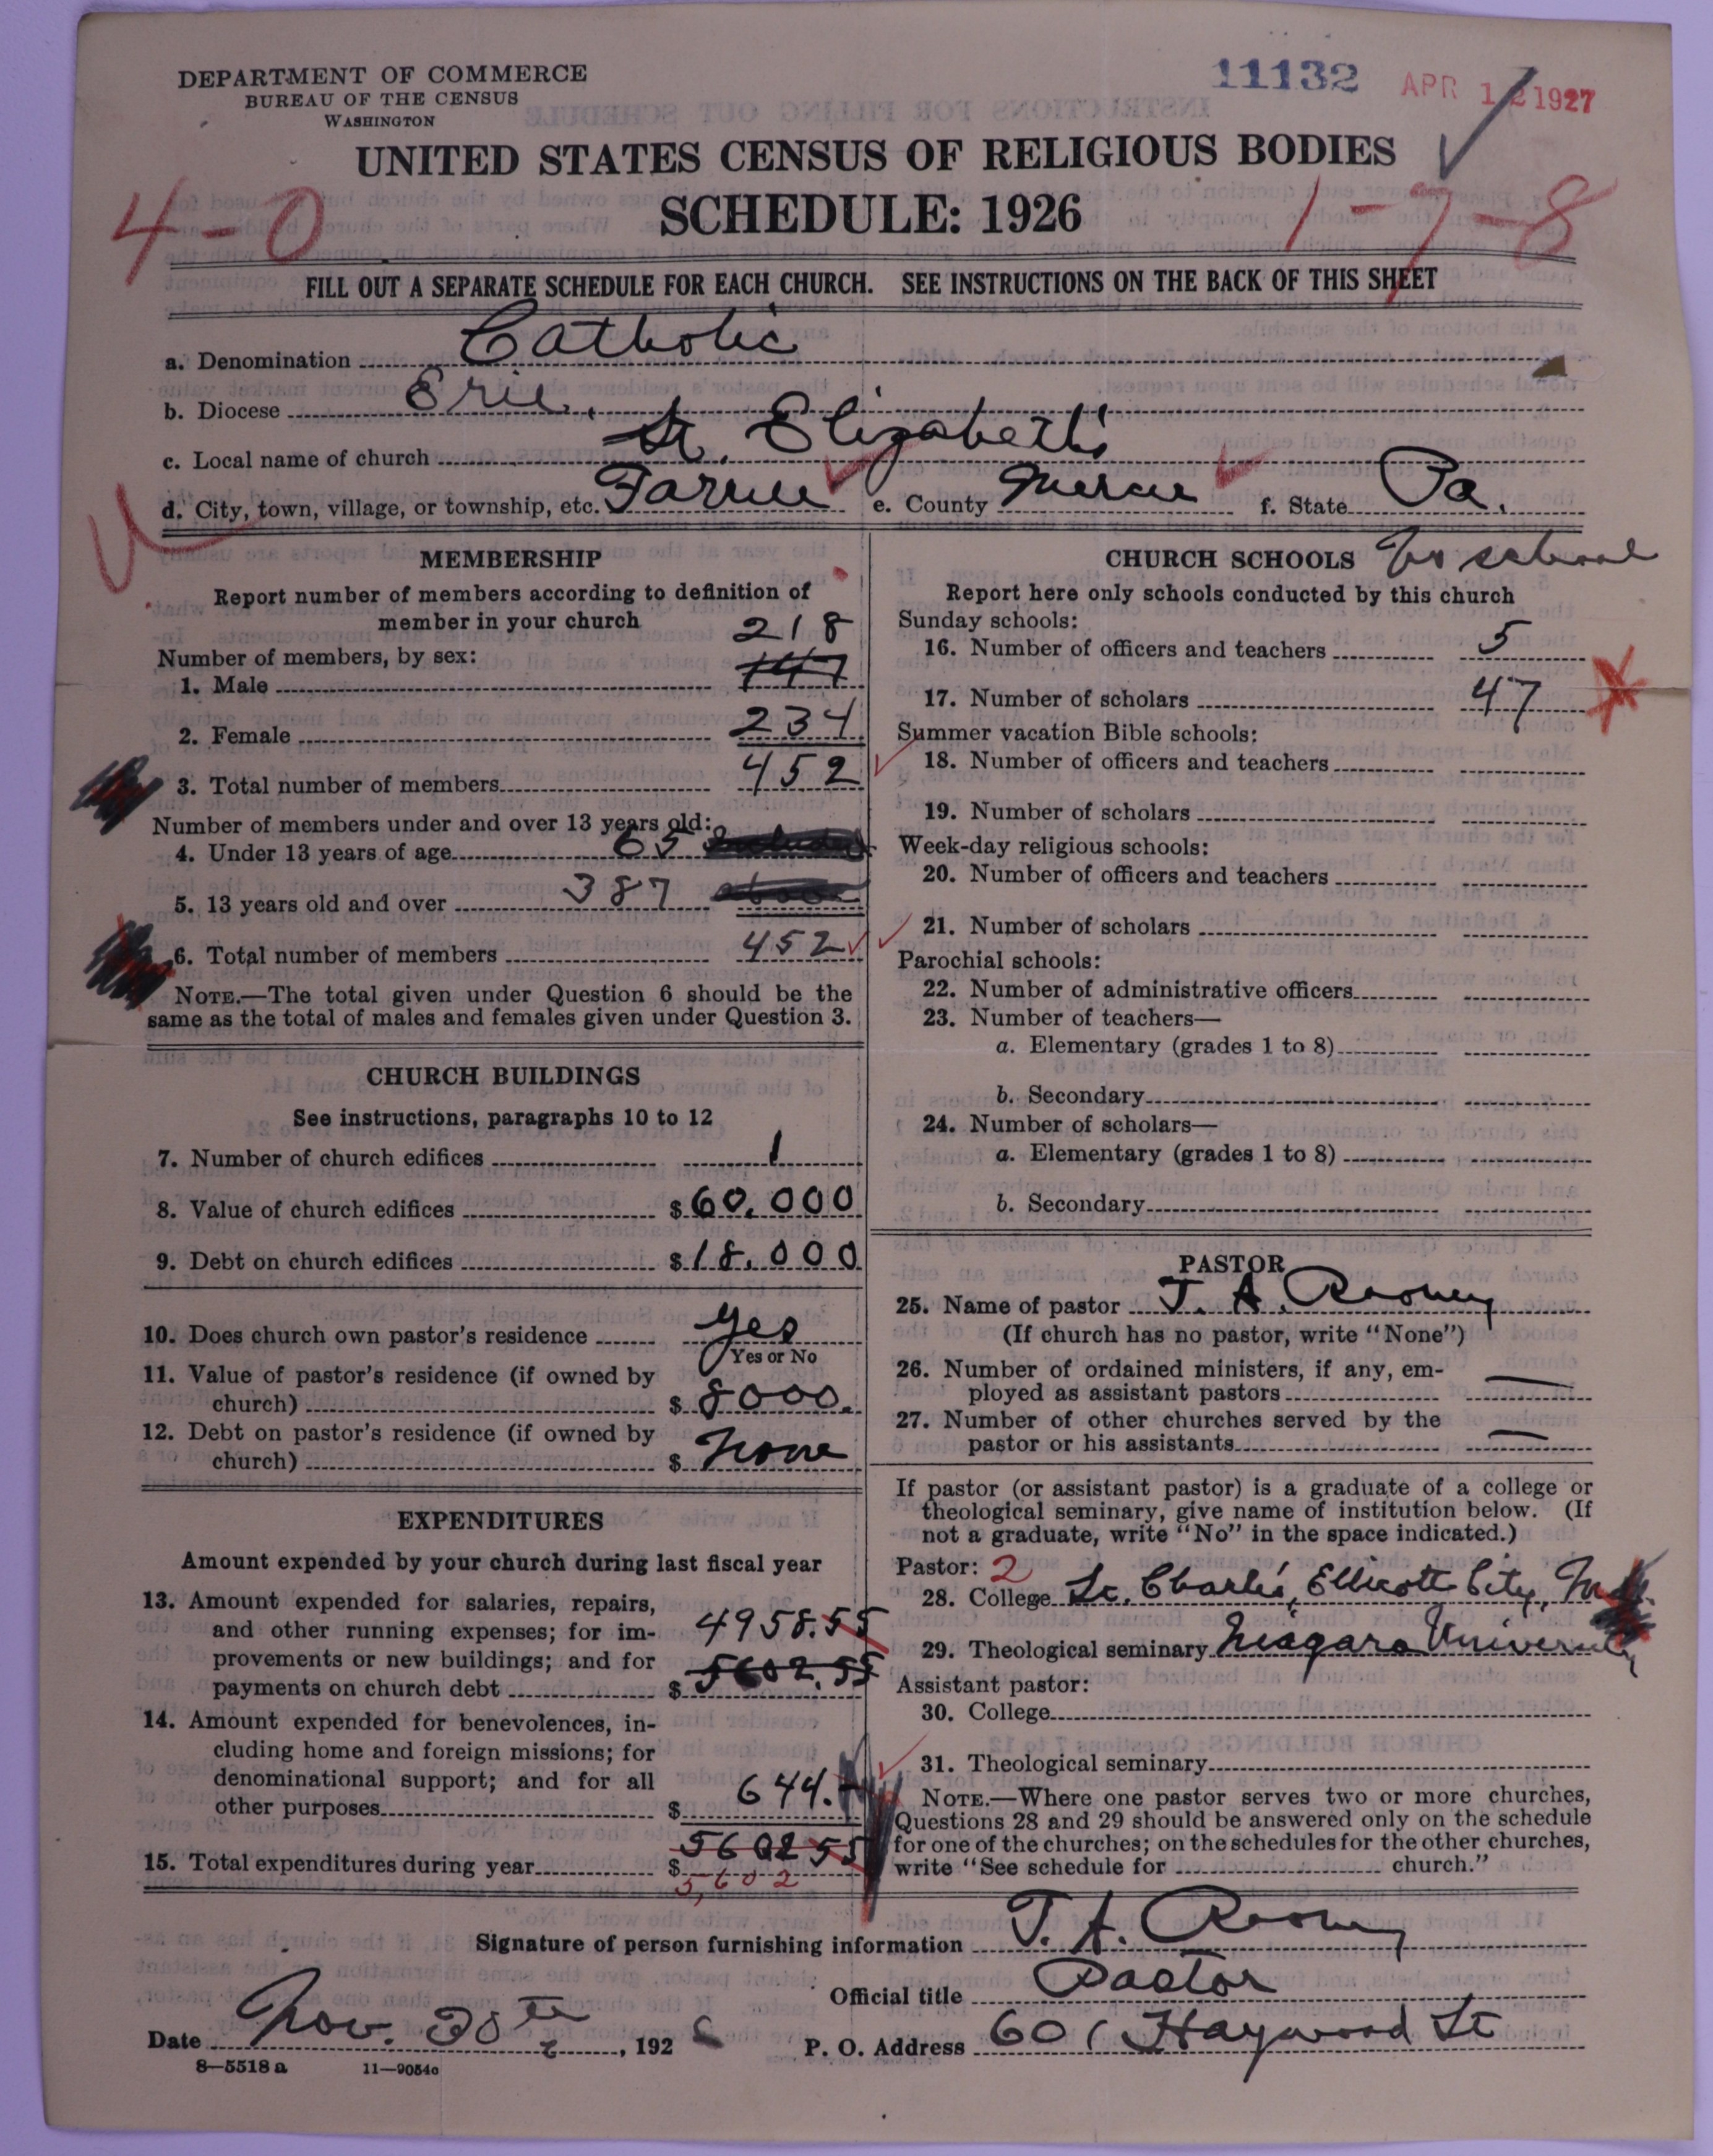 DEPARTMENT OF COMMERCE
BUREAU OF THE CENSUS
WASHINGTON
11132 APR 12 1927
UNITED STATES CENSUS OF RELIGIOUS BODIES
SCHEDULE: 1926
4-0
1-7-8
FILL OUT A SEPARATE SCHEDULE FOR EACH CHURCH. SEE INSTRUCTIONS ON THE BACK OF THIS SHEET
a. Denomination Catholic
b. Diocese Erie.
c. Local name of church St. Elizabeth's
d. City, town, village, or township, etc. Farrell e. County Mercer f. State Pa.
MEMBERSHIP
Report number of members according to definition of
member in your church
218
Number of members, by sex:
1. Male 147
2. Female 234
3. Total number of members 452
Number of members under and over 13 years old:
4. Under 13 years of age 65
5. 13 years old and over 387
6. Total number of members 452
NOTE.—The total given under Question 6 should be the
same as the total of males and females given under Question 3.
CHURCH BUILDINGS
See instructions, paragraphs 10 to 12
7. Number of church edifices 1
8. Value of church edifices $60,000
9. Debt on church edifices $18,000
10. Does church own pastor's residence Yes
Yes or No
11. Value of pastor's residence (if owned by
church) $8000.
12. Debt on pastor's residence (if owned by
church) $None
EXPENDITURES
Amount expended by your church during last fiscal year
13. Amount expended for salaries, repairs,
and other running expenses; for im- 4958.55
provements or new buildings; and for
payments on church debt $5602.55
14. Amount expended for benevolences, in-
cluding home and foreign missions; for
denominational support; and for all
other purposes $644.
15. Total expenditures during year $5602 55
5,602
CHURCH SCHOOLS No school
Report here only schools conducted by this church
Sunday schools:
16. Number of officers and teachers 5
17. Number of scholars 47
Summer vacation Bible schools:
18. Number of officers and teachers
19. Number of scholars
Week-day religious schools:
20. Number of officers and teachers
21. Number of scholars
Parochial schools:
22. Number of administrative officers
23. Number of teachers—
a. Elementary (grades 1 to 8)
b. Secondary
24. Number of scholars—
a. Elementary (grades 1 to 8)
b. Secondary
PASTOR
25. Name of pastor T. A. Rooney
(If church has no pastor, write "None")
26. Number of ordained ministers, if any, em-
ployed as assistant pastors —
27. Number of other churches served by the
pastor or his assistants —
If pastor (or assistant pastor) is a graduate of a college or
theological seminary, give name of institution below. (If
not a graduate, write "No" in the space indicated.)
Pastor: 2
28. College St. Charles, Ellicott City, Md.
29. Theological seminary Niagara University
Assistant pastor:
30. College
31. Theological seminary
NOTE.—Where one pastor serves two or more churches,
Questions 28 and 29 should be answered only on the schedule
for one of the churches; on the schedules for the other churches,
write "See schedule for church."
Signature of person furnishing information T. A. Rooney
Official title Pastor
Date Nov. 20th, 1926
P. O. Address 601 Haywood St
8-5518 a 11-9054a